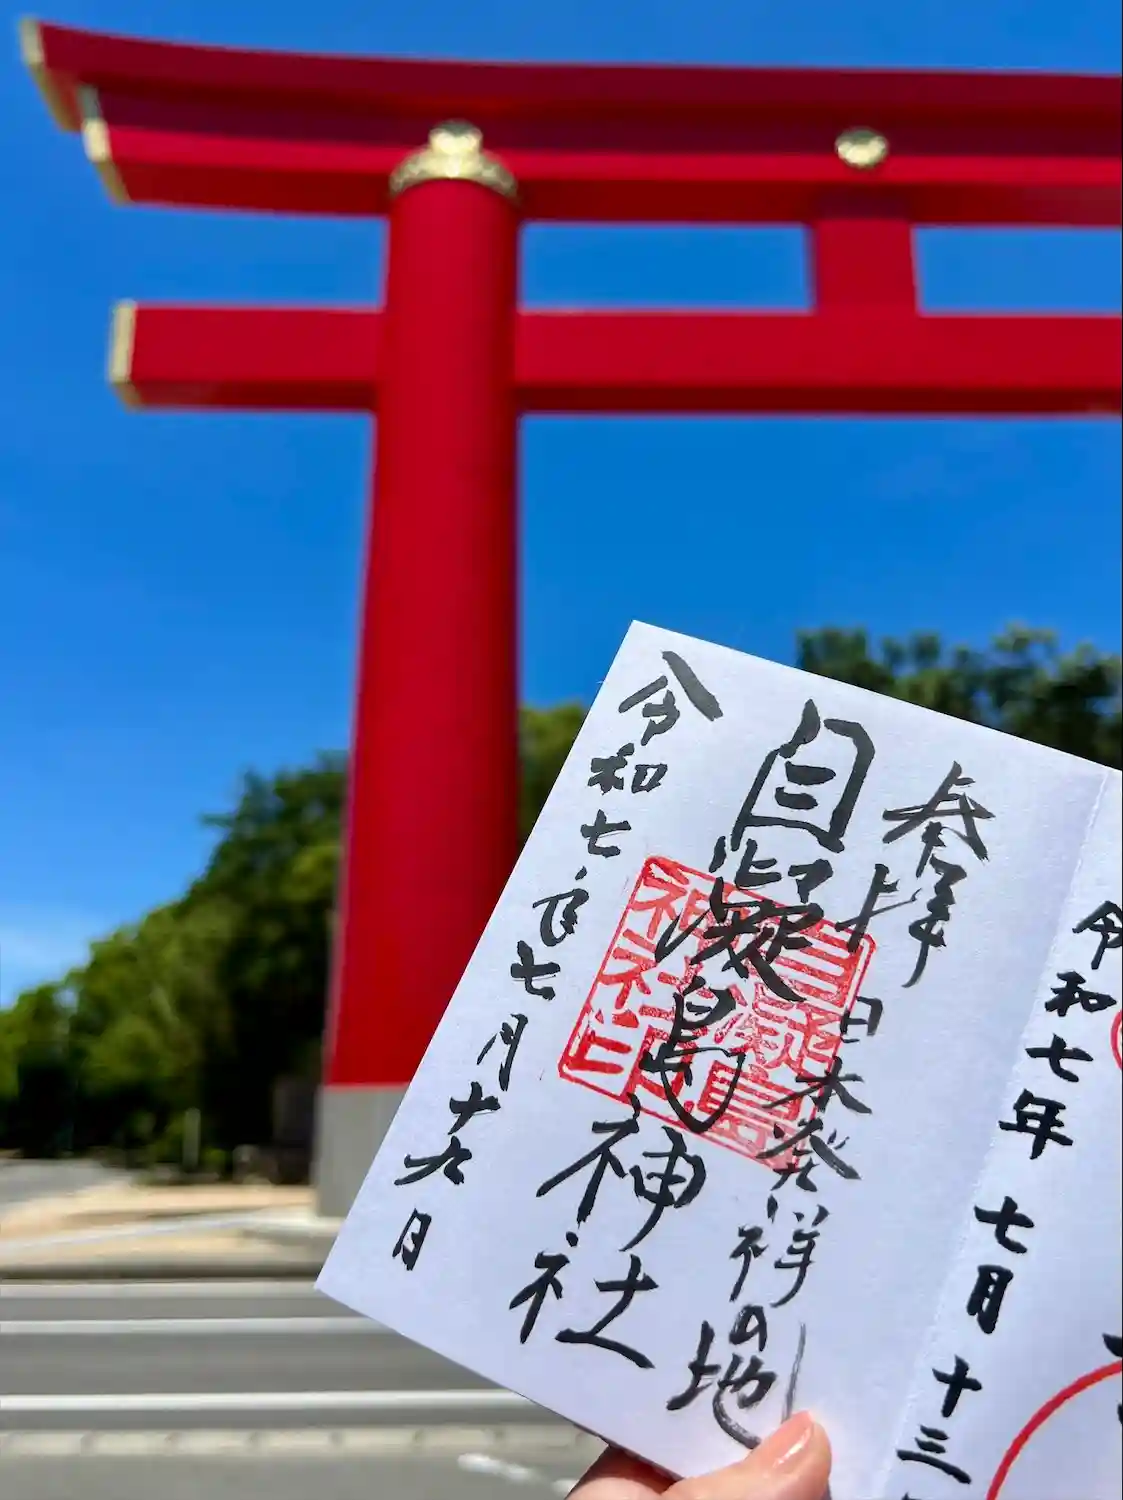 令和七年 七月 十三
奉拝
日本発祥の地
自凝島神社
自凝島
神社印
令和七年七月十九日